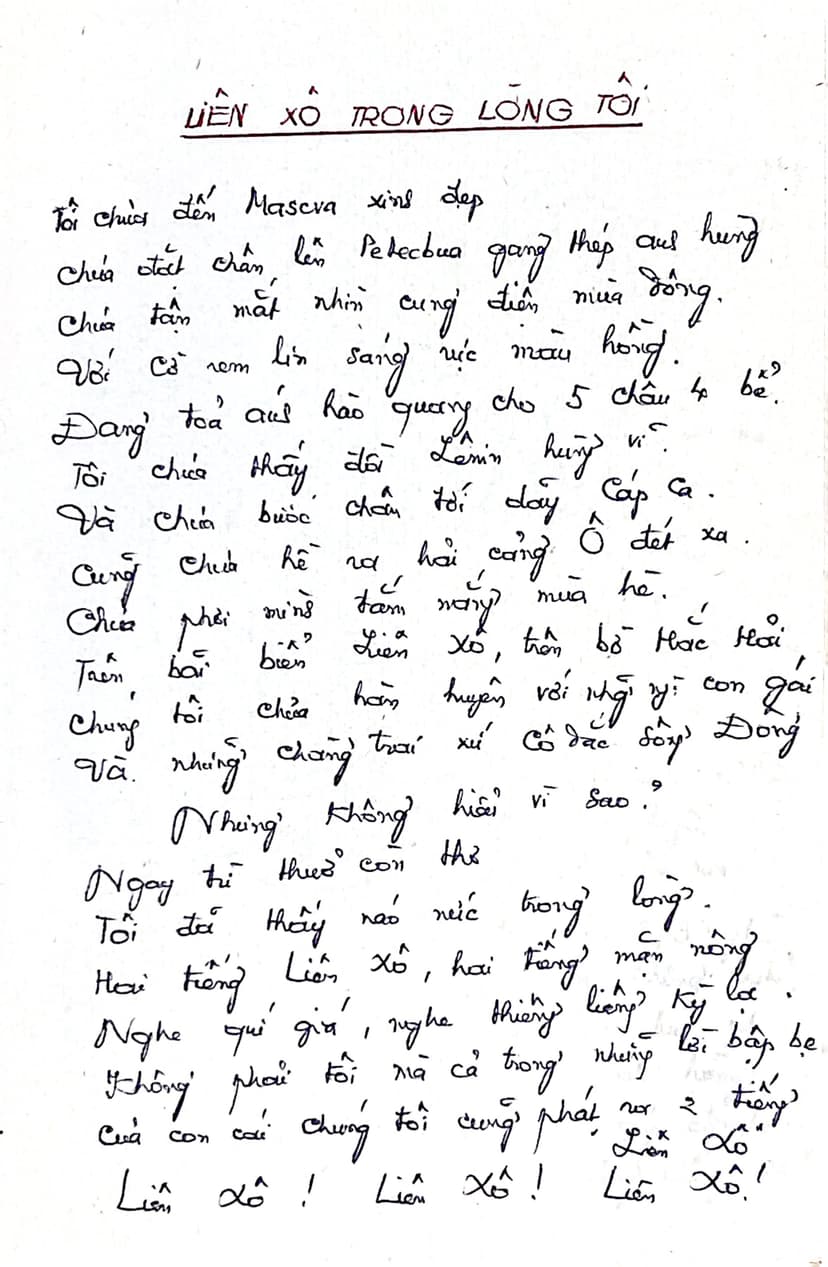 LIÊN XÔ TRONG LÒNG TÔI
Tôi chưa đến Mascva xinh đẹp
Chưa đặt chân lên Petecbua gang thép anh hùng
Chưa tận mắt nhìn cung điện mùa đông.
Với Cờ rem lin sáng rực màu hồng.
Đang toả ánh hào quang cho 5 châu 4 bể.
Tôi chưa thấy đồi Lênin hùng vĩ.
Và chưa bước chân tới dãy Cáp Ca.
Cũng chưa hề ra hải cảng Ô đét xa.
Chưa phơi mình tắm nắng mùa hè.
Trên bãi biển Liên Xô, trên bờ Hắc Hải,
Chúng tôi chưa hàn huyên với những con gái
Và những chàng trai xứ Cô dắc sông Đông
Nhưng không hiểu vì sao?
Ngay từ thuở còn thơ
Tôi đã thấy náo nức trong lòng.
Hai tiếng Liên Xô, hai tiếng mặn nồng
Nghe quí giá, nghe thiêng liêng kỳ lạ.
Không phải tôi mà cả trong những lời bập bẹ
Của con cái chúng tôi cũng phát ra 2 tiếng
Liên Xô
Liên Xô! Liên Xô! Liên Xô!